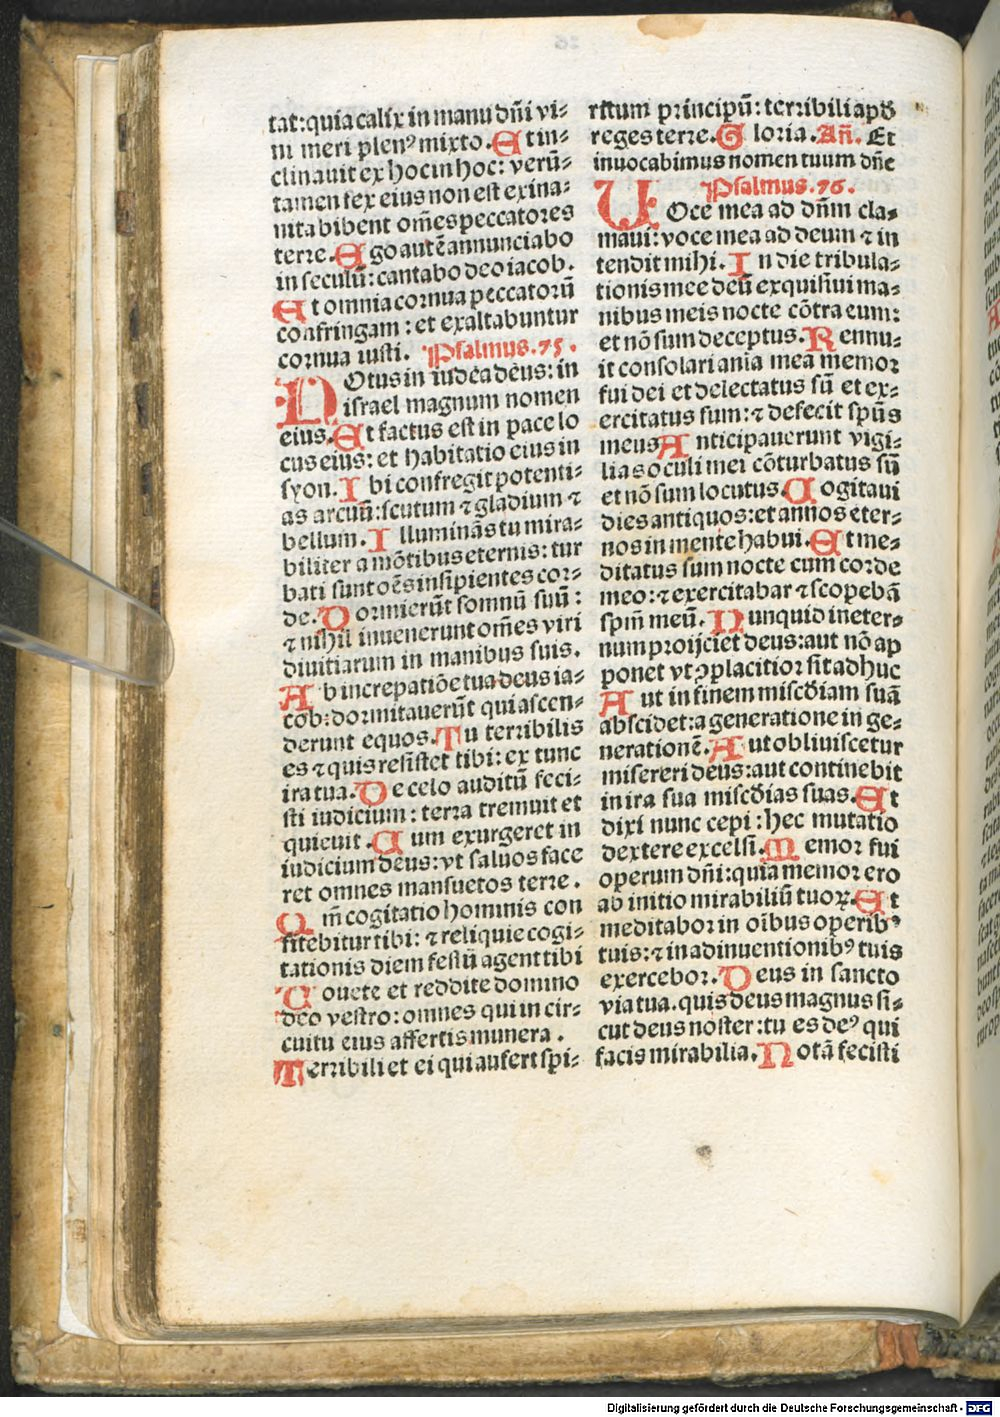 tat:quia calix in manu dñi vi-
ni meri plenꝰ mixto. Et in-
clinauit ex hoc in hoc: verū-
tamen fex eius non est exina-
nita bibent om̄es peccatores
terre. Ego autē annunciabo
in seculū: cantabo deo iacob.
Et omnia cornua peccatorū
confringam: et exaltabuntur
cornua iusti. Psalmus.75.
NOtus in iudea deus: in
israel magnum nomen
eius. Et factus est in pace lo
cus eius: et habitatio eius in
syon. Ibi confregit potenti-
as arcuū: scutum ⁊ gladium ⁊
bellum. Illuminās tu mira-
biliter a mōtibus eternis: tur
bati sunt oēs insipientes cor-
de. Dormierūt somnū suū:
⁊ nihil inuenerunt om̄es viri
diuitiarum in manibus suis.
Ab increpatiōe tua deus ia-
cob: dormitauerūt qui ascen-
derunt equos. Tu terribilis
es ⁊ quis resistet tibi: ex tunc
ira tua. De celo auditū feci-
sti iudicium: terra tremuit et
quieuit. Cum exurgeret in
iudicium deus: vt saluos face
ret omnes mansuetos terre.
Qm̄ cogitatio hominis con
fitebitur tibi: ⁊ reliquie cogi-
tationis diem festū agent tibi
Uouete et reddite domino
deo vestro: omnes qui in cir-
cuitu eius affertis munera.
Terribili et ei qui aufert spi-
ritum principū: terribili apđ
reges terre. Gloria. Añ. Et
inuocabimus nomen tuum dñe
Psalmus.76.
UOce mea ad dñm cla-
maui: voce mea ad deum ⁊ in
tendit mihi. In die tribula-
tionis mee deū exquisiui ma-
nibus meis nocte cōtra eum:
et nō sum deceptus. Rennu-
it consolari anīa mea memor
fui dei et delectatus sū et ex-
ercitatus sum: ⁊ defecit spūs
meus Anticipauerunt vigi-
lias oculi mei cōturbatus sū
et nō sum locutus. Cogitaui
dies antiquos: et annos eter-
nos in mente habui. Et me-
ditatus sum nocte cum corde
meo: ⁊ exercitabar ⁊ scopebā
spm̄ meū. Nunquid in eter-
num proijciet deus: aut nō ap
ponet vt ꝯplacitior sit adhuc
Aut in finem miscđiam suā
abscidet: a generatione in ge-
nerationē. Aut obliuiscetur
misereri deus: aut continebit
in ira sua miscđias suas. Et
dixi nunc cepi: hec mutatio
dextere excelsi. Memor fui
operum dñi: quia memor ero
ab initio mirabiliū tuoꝝ. Et
meditabor in oībus operibꝰ
tuis: ⁊ in adinuentionibꝰ tuis
exercebor. Deus in sancto
via tua. quis deus magnus si-
cut deus noster: tu es deꝰ qui
facis mirabilia. Notā fecisti
Digitalisierung gefördert durch die Deutsche Forschungsgemeinschaft - DFG